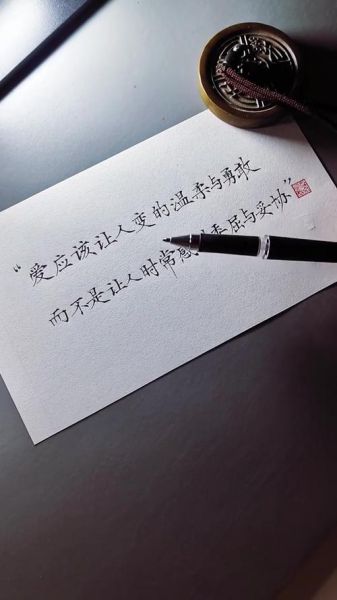 “爱应该让人变的温柔与勇敢
而不是让人时常感委屈与妥协”